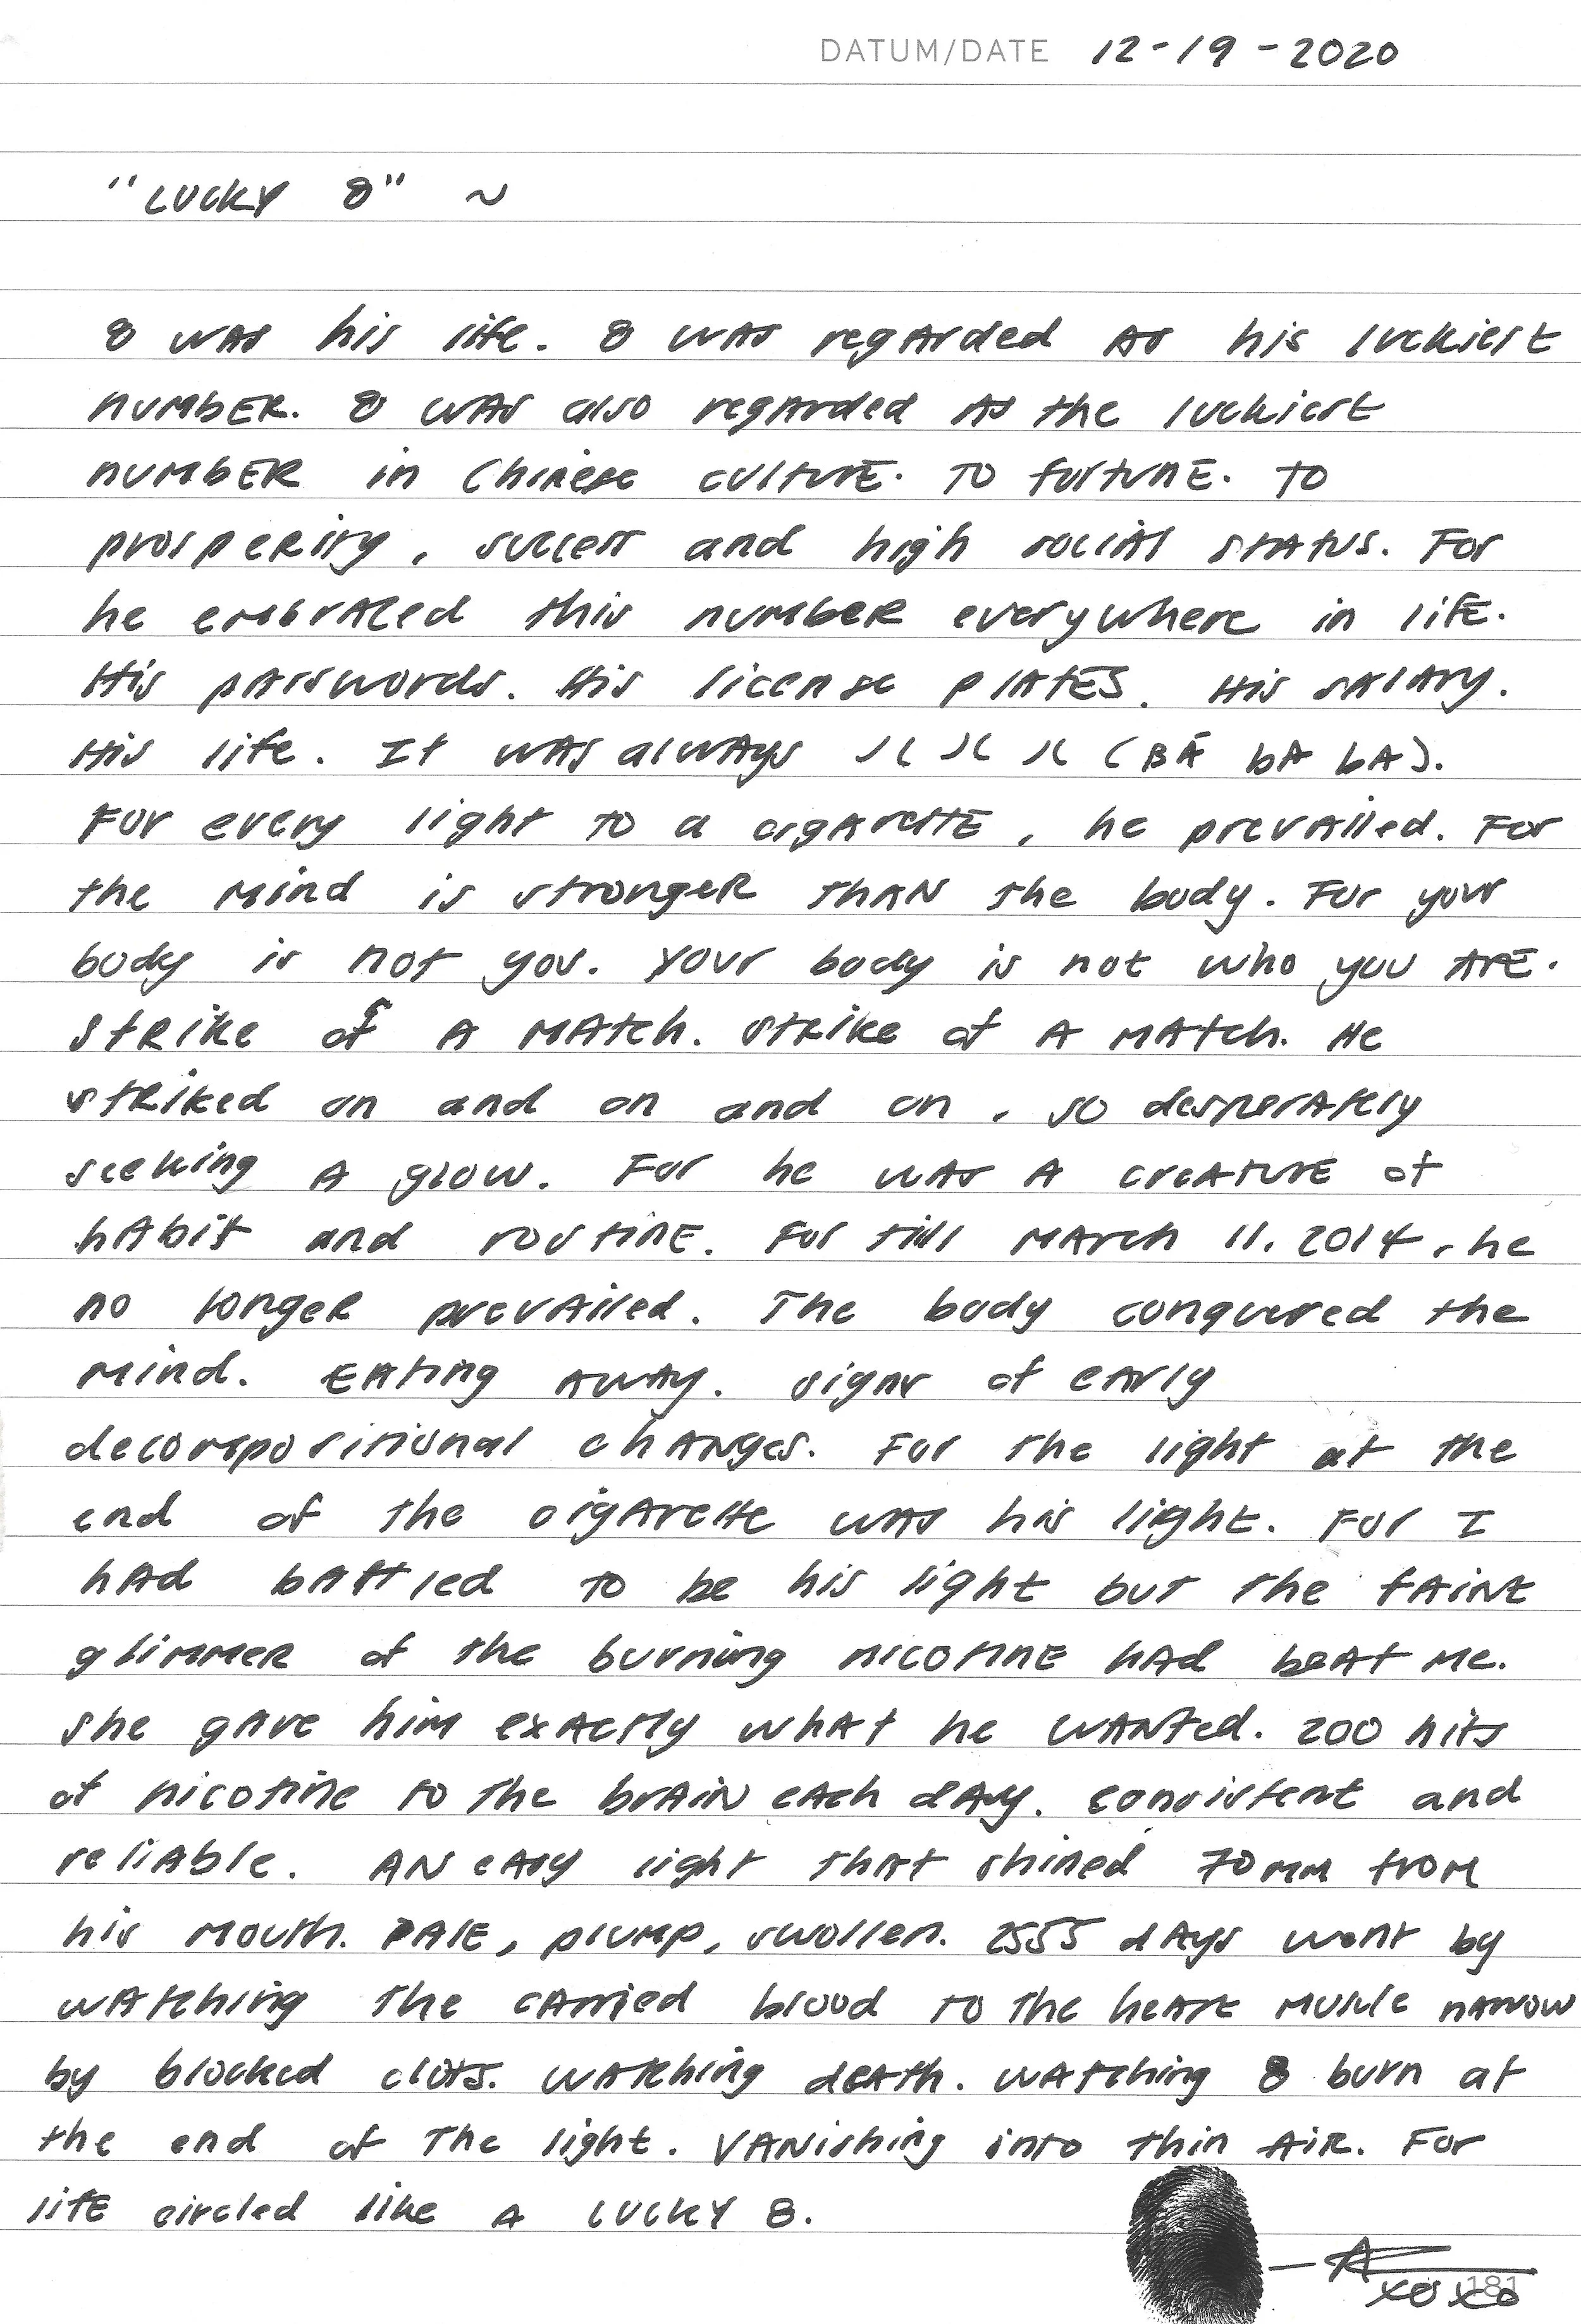 DATUM/DATE 12-19-2020
"LUCKY 8" ~
8 was his life. 8 was regarded as his luckiest
number. 8 was also regarded as the luckiest
number in Chinese culture. To fortune. To
prosperity, success and high social status. For
he embraced this number everywhere in life.
His passwords. His license plates. His salary.
His life. It was always 八 八 八 (BĀ bA bA).
For every light to a cigarette, he prevailed. For
the mind is stronger than the body. For your
body is not you. Your body is not who you are.
Strike of a match. Strike of a match. He
striked on and on and on, so desperately
seeking a glow. For he was a creature of
habit and routine. For till March 11, 2014, he
no longer prevailed. The body conquered the
mind. Eating away. Signs of early
decompositional changes. For the light at the
end of the cigarette was his light. For I
had battled to be his light but the faint
glimmer of the burning nicotine had beat me.
She gave him exactly what he wanted. 200 hits
of nicotine to the brain each day. Consistent and
reliable. An easy light that shined 70mm from
his mouth. Pale, plump, swollen. 2555 days went by
watching the carried blood to the heart muscle narrow
by blocked clots. Watching death. Watching 8 burn at
the end of the light. Vanishing into thin air. For
life circled like a LUCKY 8.
— A
xoxo 181